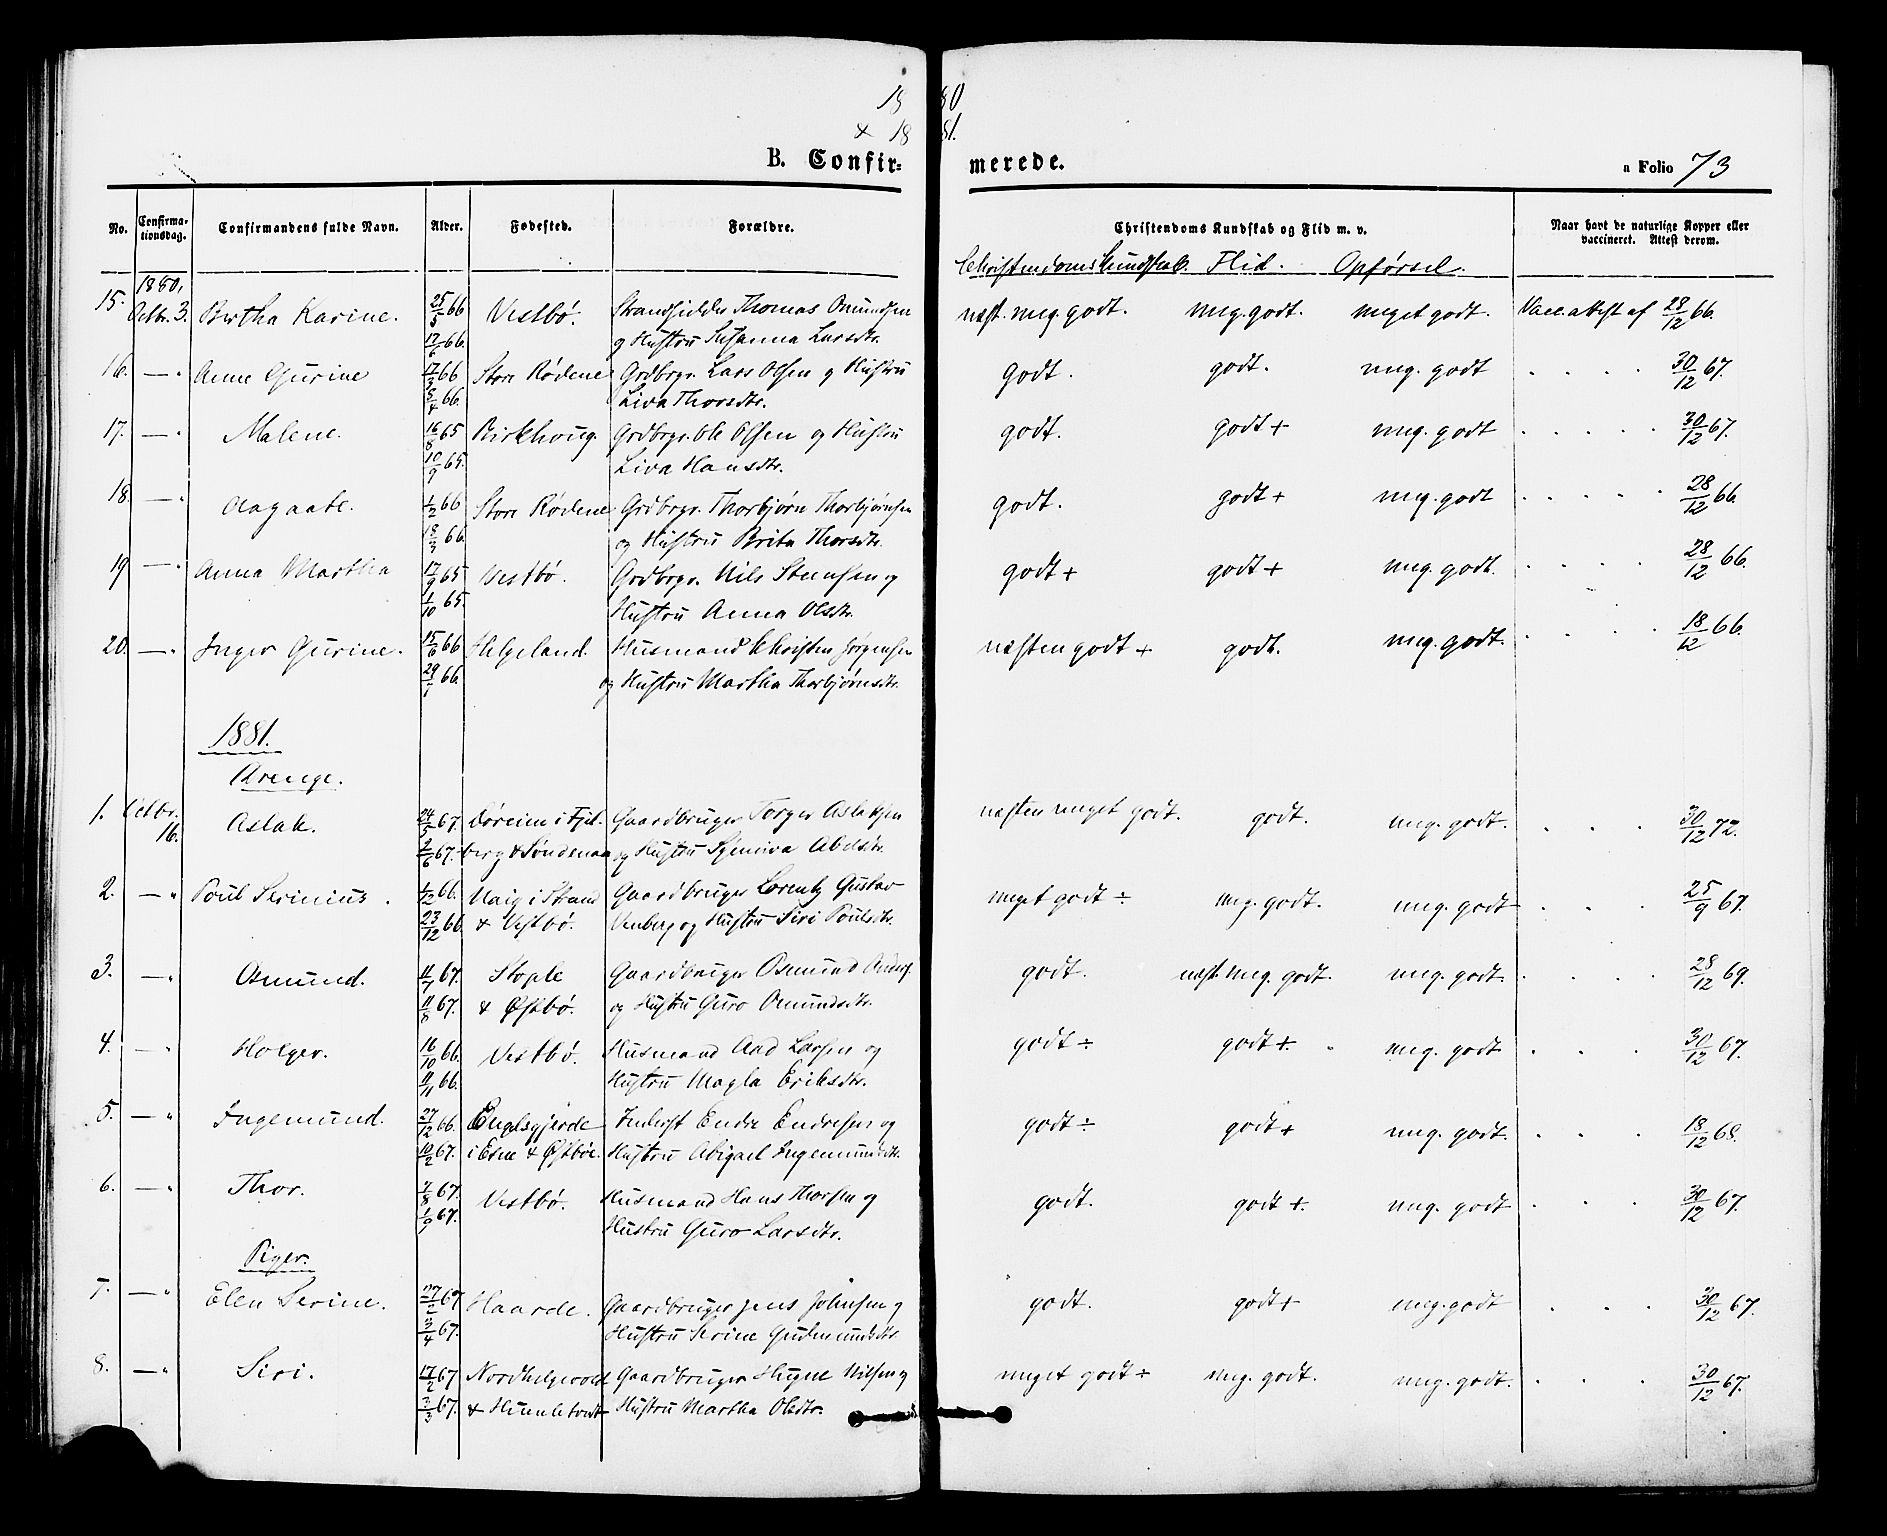 1880
& 1881.
B. Confirmerede.
a Folio 73
No. Confirmationsdag. Confirmandens fulde Navn. Alder. Fødested. Forældre. Christendoms Kundskab og Flid m. v. Naar havt de naturlige Kopper eller vaccineret. Attest derom.
Christendoms Kundskab. Flid. Opførsel.
1880,
15. Octbr. 3. Bertha Karine. 25/5 66 Vestbø. Strandsidder Thomas Omundsen næst. meg. godt. meg. godt. meget godt. Vacc. attest af 28/12 66.
17/6 66. og Hustru Susanna Larsdtr.
16. — " Anne Gurine 17/3 66 Store Rødene Grdbrgr. Lars Olsen og Hustru godt. godt. meg. godt . . . . 30/12 67.
5/4 66. Liva Thorsdtr.
17. — " Malene. 16/8 65 Birkhoug. Grdbrgr. Ole Olsen og Hustru godt. godt + meg. godt . . . . . 30/12 67.
10/9 65. Liva Hansdtr.
18. — " Aagaate. 1/2 66 Store Rødene Grdbrgr. Thorbjørn Thorbjørnsen godt. godt + meg. godt . . . . . 28/12 66.
18/3 66. og Hustru Brita Thorsdtr.
19 — " Anna Martha 17/9 65 Vestbø. Grdbrgr. Nils Steensen og godt + godt + meg. godt. . . . . 28/12 66.
1/10 65. Hustru Anna Olsdtr.
20. — " Inger Gurine. 15/6 66 Helgeland. Husmand Christen Jørgensen næsten godt + godt. meg. godt. . . . . 18/12 66.
29/7 66. og Hustru Martha Thorbjørnsdtr.
1881.
Drenge.
1. Octbr. 16. Aslak. 24/5 67. Døreim i Fjel- Gaardbruger Torger Aslaksen næsten meget godt. godt. meg. godt. . . . 30/12 72.
2/6 67. berg & Søndenaa og Hustru Synniva Abelsdtr.
2. — " Poul Serinius. 1/12 66. Vaig i Strand Gaardbruger Lorentz Gustav meget godt ÷ meg. godt. meg. godt . . . 25/9 67.
23/12 66 & Vestbø. Venberg og Hustru Siri Poulsdtr.
3. — " Osmund. 11/7 67. Stople Gaardbruger Osmund Anders. godt. næst. meg. godt. meg. godt. . . . . 28/12 69.
11/8 67. & Østbø. og Hustru Guro Omundsdtr.
4. — " Holger. 16/10 66. Vestbø. Husmand Aad Larsen og godt ÷ godt +. meg. godt . . . 30/12 67.
11/11 66. Hustru Magla Eriksdtr.
5. — " Ingemund. 27/12 66. Engelsgjerde Inderst Endre Endresen og godt ÷ godt + meg. godt. . . . 18/12 68.
10/2 67. i Etne & Østbø. Hustru Abigael Ingemundsdtr.
6. — " Thor. 7/8 67. Vestbø. Husmand Hans Thorsen og godt. godt +. meg. godt . . . 30/12 67.
1/9 67. Hustru Guro Larsdtr.
Piger.
7. — " Elen Serine. 27/2 67 Haarde. Gaardbruger Jens Johnsen og godt. godt + meg. godt . . . 30/12 67.
3/4 67. Hustru Serine Gudmundsdtr.
8. — " Siri. 17/2 67 Nordhelgevold Gaardbruger Helge Nilsen og meget godt ÷ meg. godt. meg. godt. . . . 30/12 67.
3/3 67. & Humletvedt Hustru Martha Olsdtr.